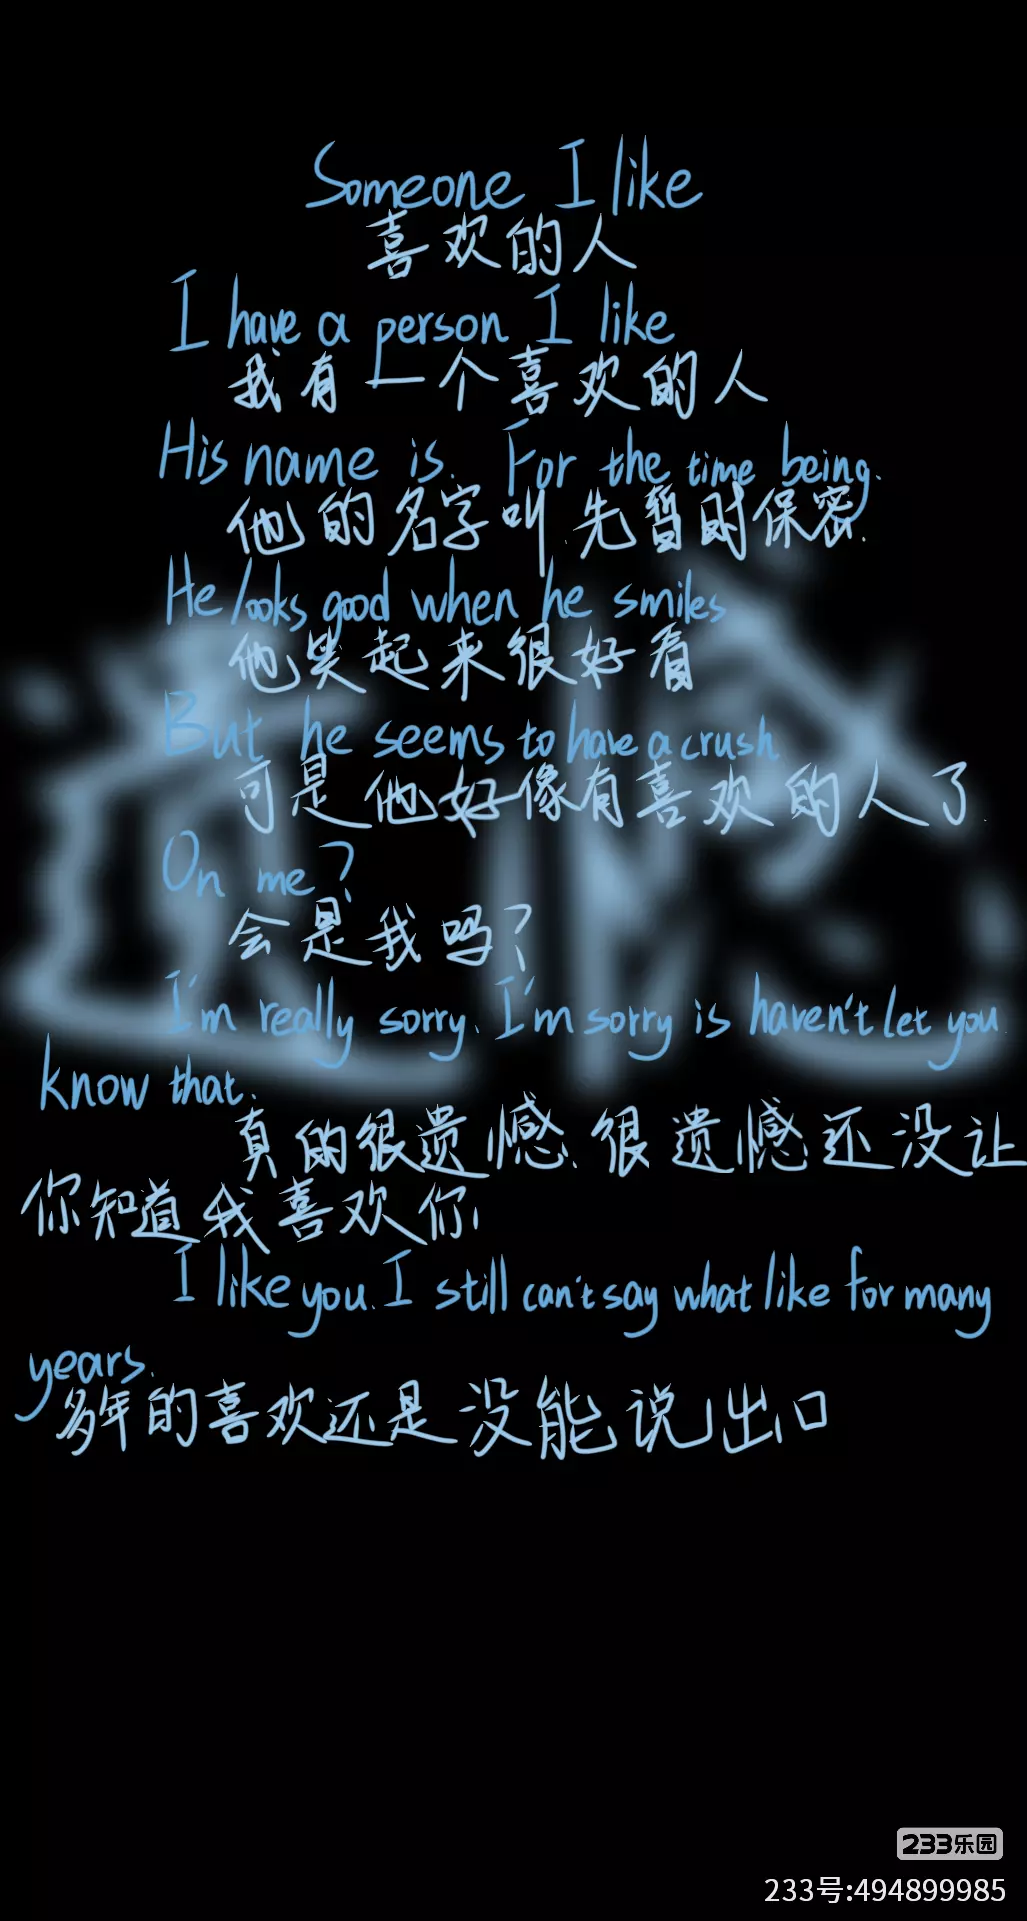 Someone I like
喜欢的人
I have a person I like
我有一个喜欢的人
His name is. For the time being.
他的名字叫.先暂时保密.
He looks good when he smiles
他笑起来很好看
But he seems to have a crush
可是他好像有喜欢的人了.
On me?
会是我吗?
I'm really sorry. I'm sorry is haven't let you
know that.
真的很遗憾.很遗憾还没让
你知道我喜欢你
I like you. I still can't say what like for many
years.
多年的喜欢还是没能说出口
遗憾
233乐园
233号:494899985